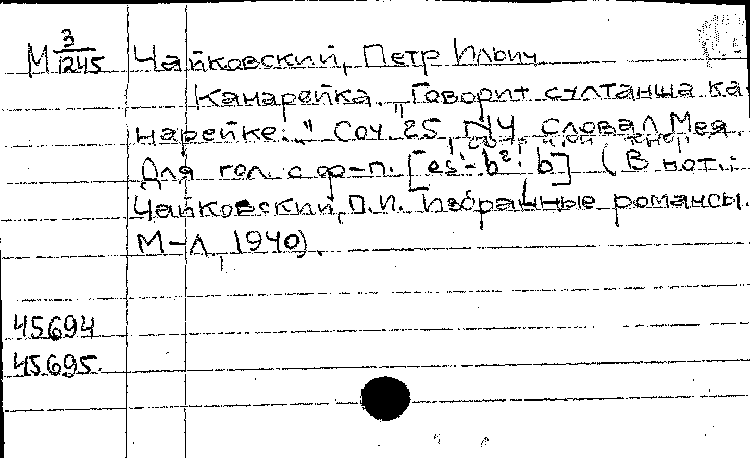 М 3/1245 Чайковский, Петр Ильич
Канарейка. „Говорит султанша ка-
нарейке..." Соч. 25, №4, слова Л. Мея.
Для гол. с ф-п. [es¹-b²; b] (В нот.:
Чайковский, П.И. Избранные романсы.
М-Л, 1940).
45694
45695.